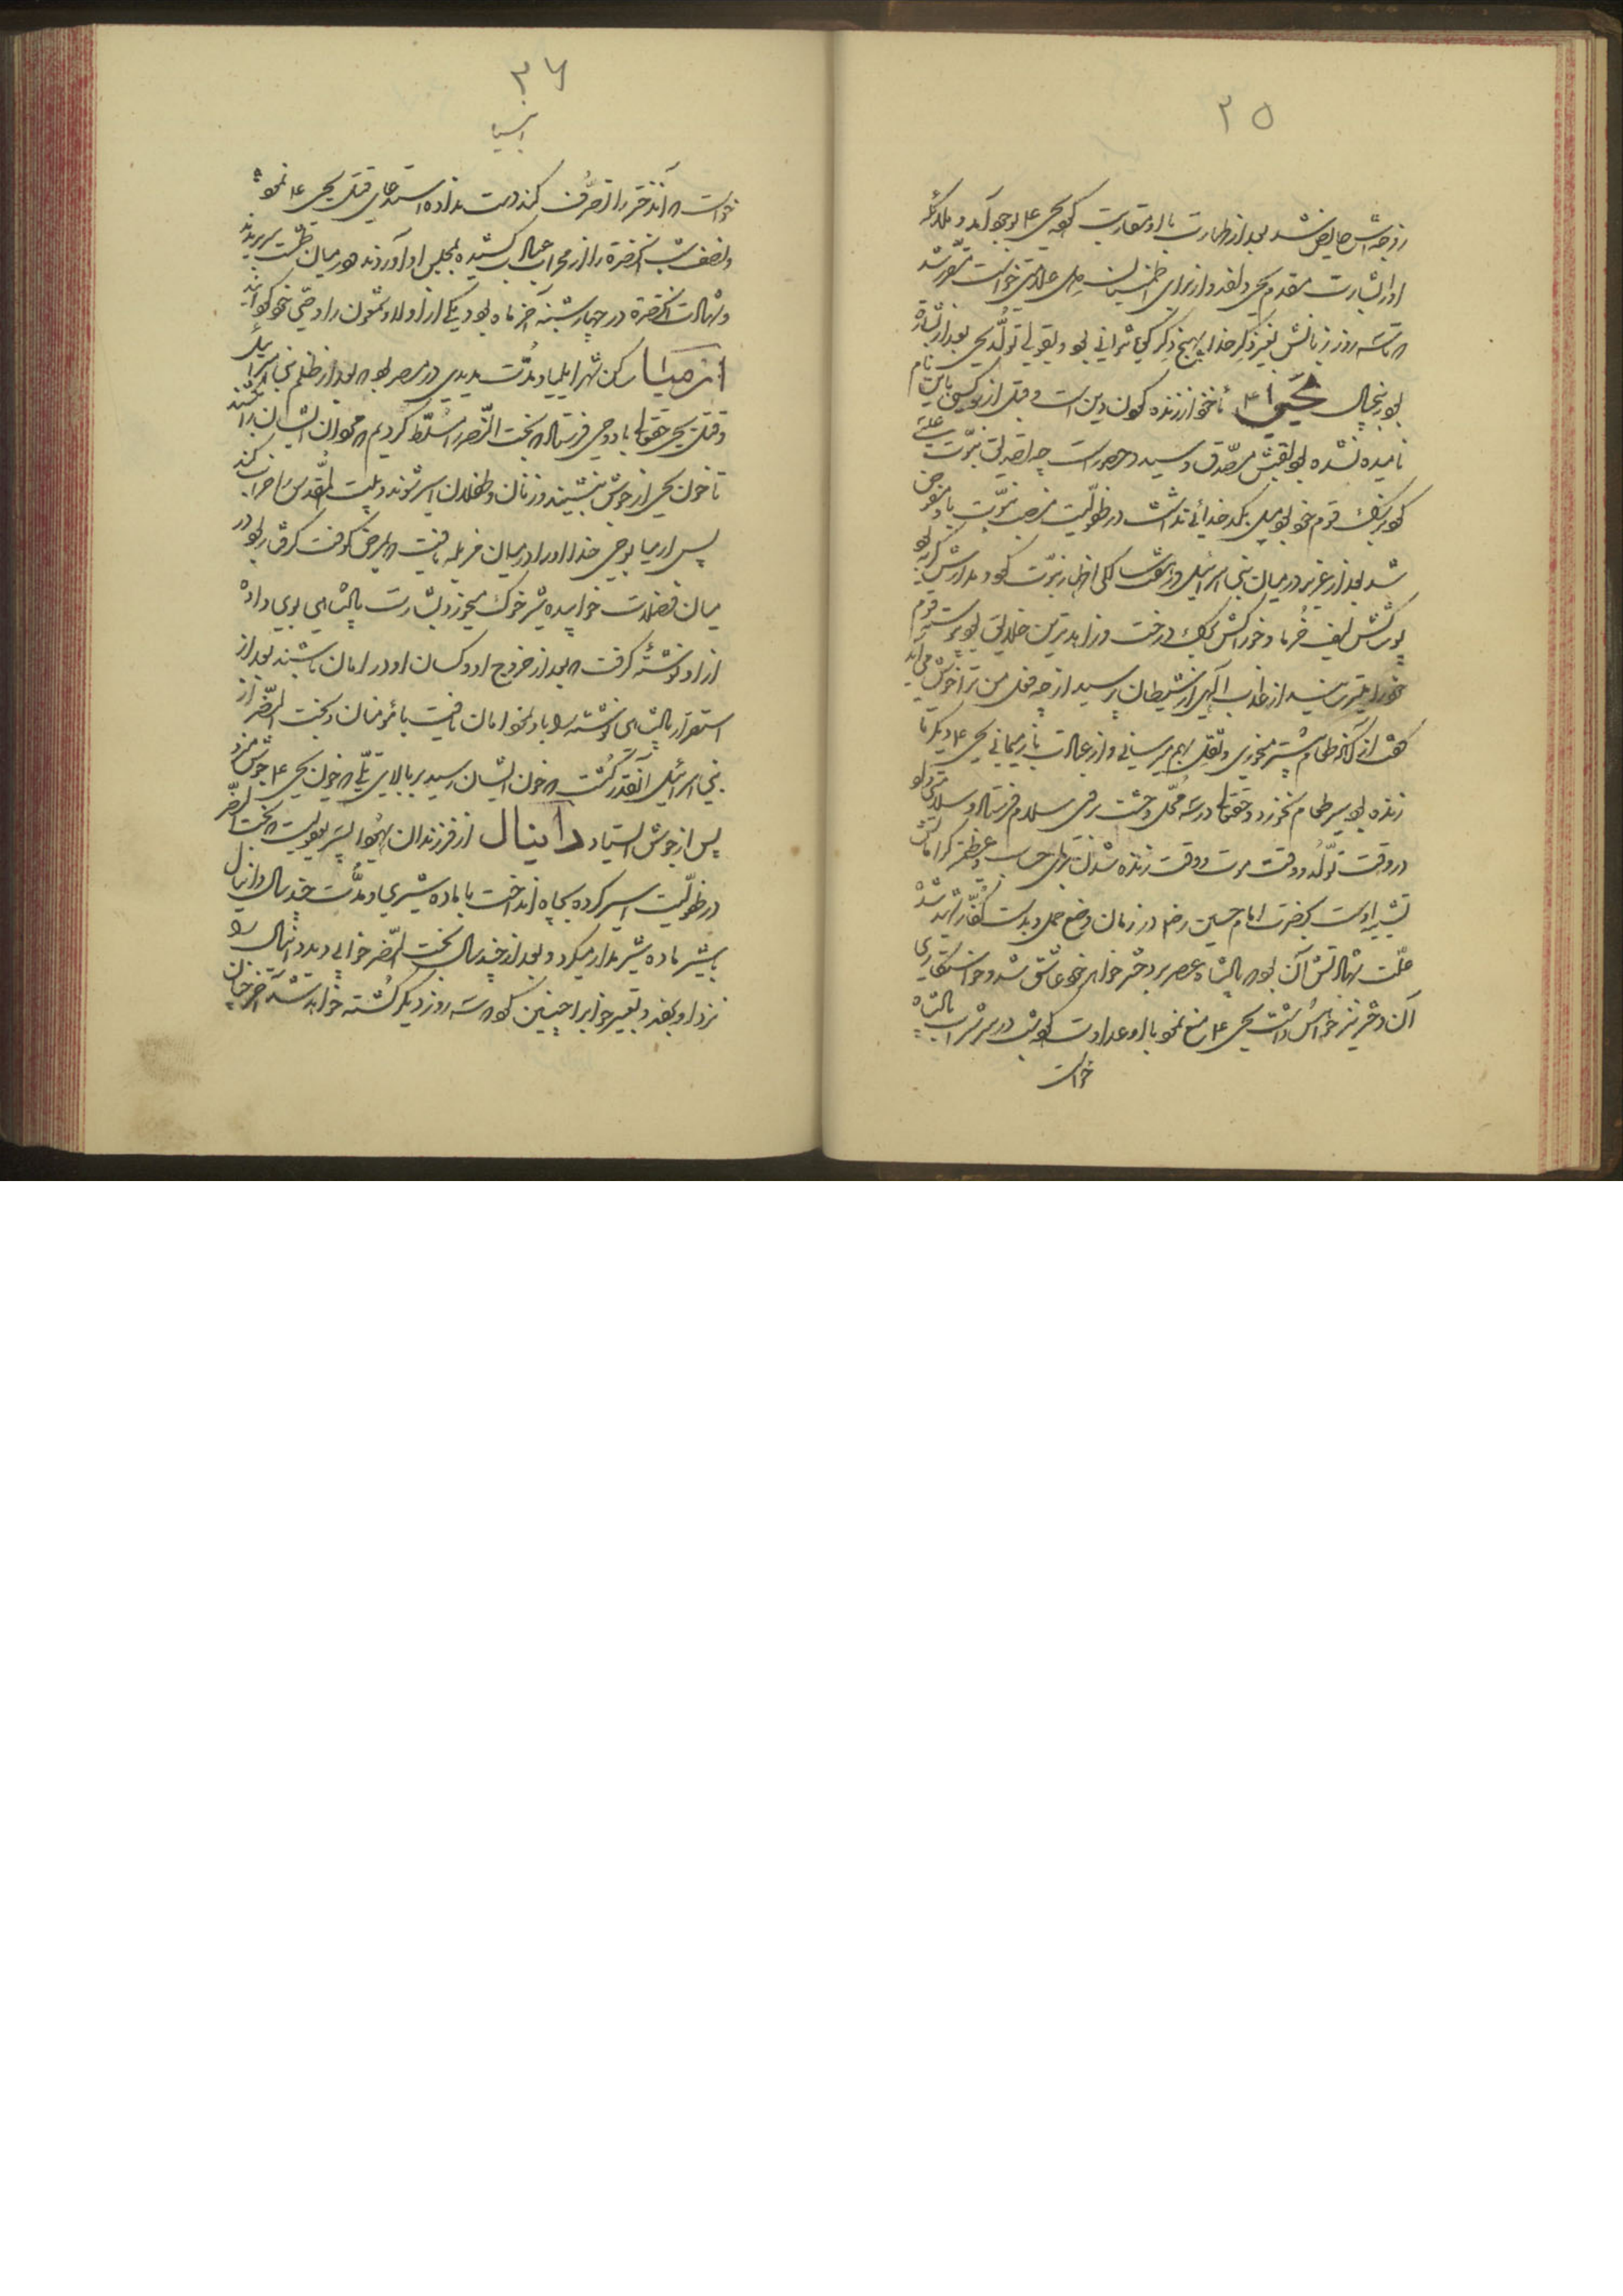 ۲۵
زوجه‌اش حایض شد بعد از طهارت با او مقاربت کرد یحیی ۴ بوجود آمد و ملائکه
او را بشارت مقدم یحیی دادند و از برای اطمینان دل علامتی خواست مقرر شد
تا سه روز زبانش بغیر ذکر خدا بهیچ ذکر گویا نتوانی بود و بقولی تولد یحیی بعد از بشارت
بود پنجسال یحیی ۴ مأخوذ از زنده کردن دین است و قبل از او کسی باین نام
نامیده نشده بود لقبش مصدق و سید و حصور است چه تصدیق نبوت عیسی
کرد بزرگ قوم خود بود میل بکدخدائی نداشت در طفولیت منصب نبوت باو مفوض
شد بعد از عزیر در میان بنی اسرائیل در هشت سالگی اظهار نبوت کرد و مدارش گریه بود
پوشش لیف خرما و خوراکش برگ درخت و زاهدترین خلایق بود پیوسته قوم
خود را میترسانید از عذاب الهی از شیطان پرسید از چه فعل من ترا خوش می‌آید
گفت از آنکه طعام بیشتر میخوری و ثقل بهم میرسانی و از عبادت باز میمانی یحیی ۴ دیگر تا
زنده بود سیر طعام نخورد و حقتعالی در سه محل وحشت بر وی سلام فرستاد و سلامتی داد
در وقت تولد و وقت موت و وقت زنده شدن برای حساب
تشبیه اوست بحضرت امام حسین رض در زمان وضع حمل و بدست کفار شهید شد
علت شهادتش آن بود که پادشاه عصر بر دختر خواهر خود عاشق شد و خواستگاری
آن دختر نیز خواهش داشت یحیی ۴ منع نمود با او عداوت کرد شب در سر شراب پادشاه
خواست
۲۶
انبیا
خواست که آن دختر را تصرف کند دست نداده استدعای قتل یحیی ۴ نمود
و نصف شب آنحضرت را از محراب عبادت کشیده بمجلس او آوردند و در میان طشت سر بریدند
و شهادت آنحضرت در چهارشنبه آخر ماه بود یکی از اولاد شمعون را وصی خود گردانید
ارمیا ساکن شهر ایلیا و مدت مدیدی در مصر بود که بعد از ظلم بنی اسرائیل
و قتل یحیی حقتعالی باو وحی فرستاد که بخت النصر را مسلط کردیم که مجموع ایشان را بکشند
تا خون یحیی از جوش بنشیند و زنان و طفلان اسیر شوند و بیت المقدس را خراب کند
پس ارمیا بوحی خدا او را در میان مزبله یافت که بمرض کوفت گرفتار بود در
میان فضلات خوابیده شیر خوک میخورد بشارت پادشاهی بوی داد
از او نوشته گرفت که بعد از خروج او و کسان او در امان باشند بعد از
استقرار پادشاهی نوشته را باو نمود امان یافت با مؤمنان و بخت النصر از
بنی اسرائیل آنقدر کشت که خون ایشان رسید بر بالای تلی که خون یحیی ۴ جوش میزد
پس از جوش ایستاد دانیال از فرزندان یهودا پسر یعقوبست که بخت النصر
در طفولیت اسیر کرده بچاه انداخت با ماده شیری و مدت چند سال دانیال
با شیر ماده شیر مدار میکرد و بعد از چند سال بخت النصر خوابی دید دانیال را
نزد او بردند و تعبیر خواب را چنین کرد که سه روز دیگر کشته خواهد شد آخر چنان